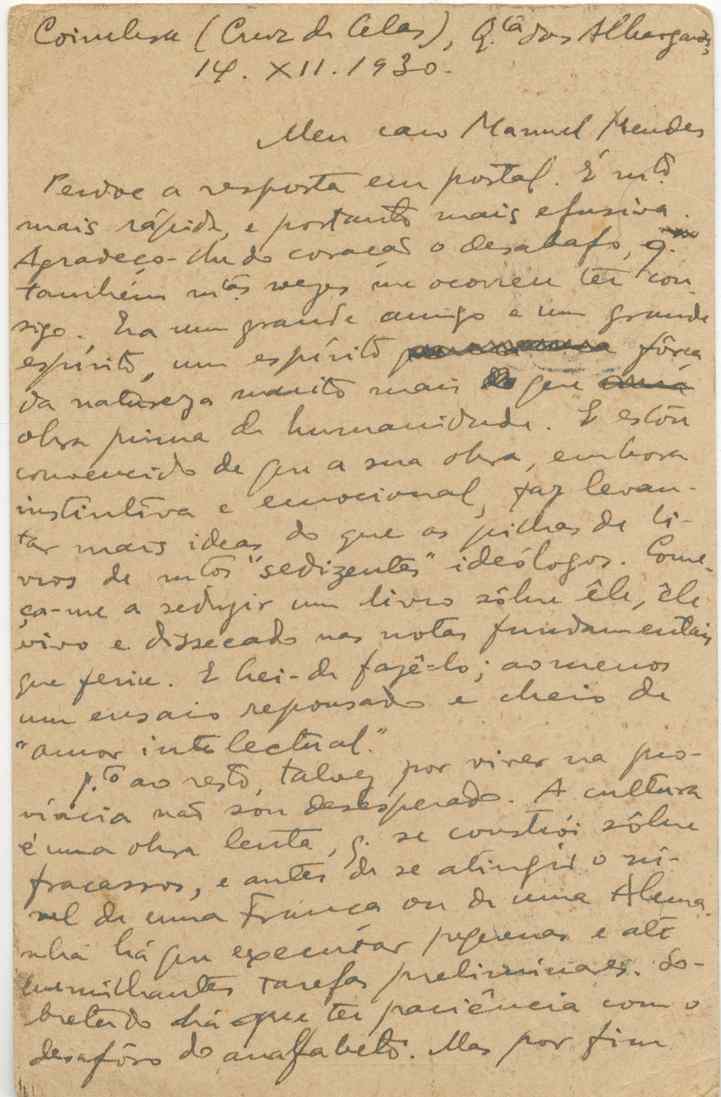 Coimbra (Cruz de Celas), Q.tã dos Alhergands,
14. XII. 1930.
Meu caro Manuel Mendes
Perdoe a resposta em postal. É m.to
mais rápida, e portanto mais efusiva.
Agradeço-lhe do coração o desabafo, q.
também m.tas vezes me ocorreu ter con-
sigo. Era um grande amigo e um grande
espírito, um espírito fôrça
da natureza muito mais que
obra prima da humanidade. E estou
convencido de que a sua obra, embora
instintiva e emocional, faz levan-
tar mais ideas do que as pilhas de li-
vros de m.tos "sedizentes" ideólogos. Come-
ça-me a seduzir um livro sôbre êle, êle
vivo e dissecado nas notas fundamentais
que feriu. E hei-de fazê-lo; ao menos
um ensaio repousado e cheio de
"amor intelectual."
p.to ao resto, talvez por viver na pro-
víncia não sou desesperado. A cultura
é uma obra lenta, q. se constrói sôbre
fracassos, e antes de se atingir o ní-
vel de uma França ou de uma Alema-
nha há que executar pequenas e até
humilhantes tarefas preliminares. So-
bretudo há que ter paciência com o
desafôro do analfabeto. Mas por fim